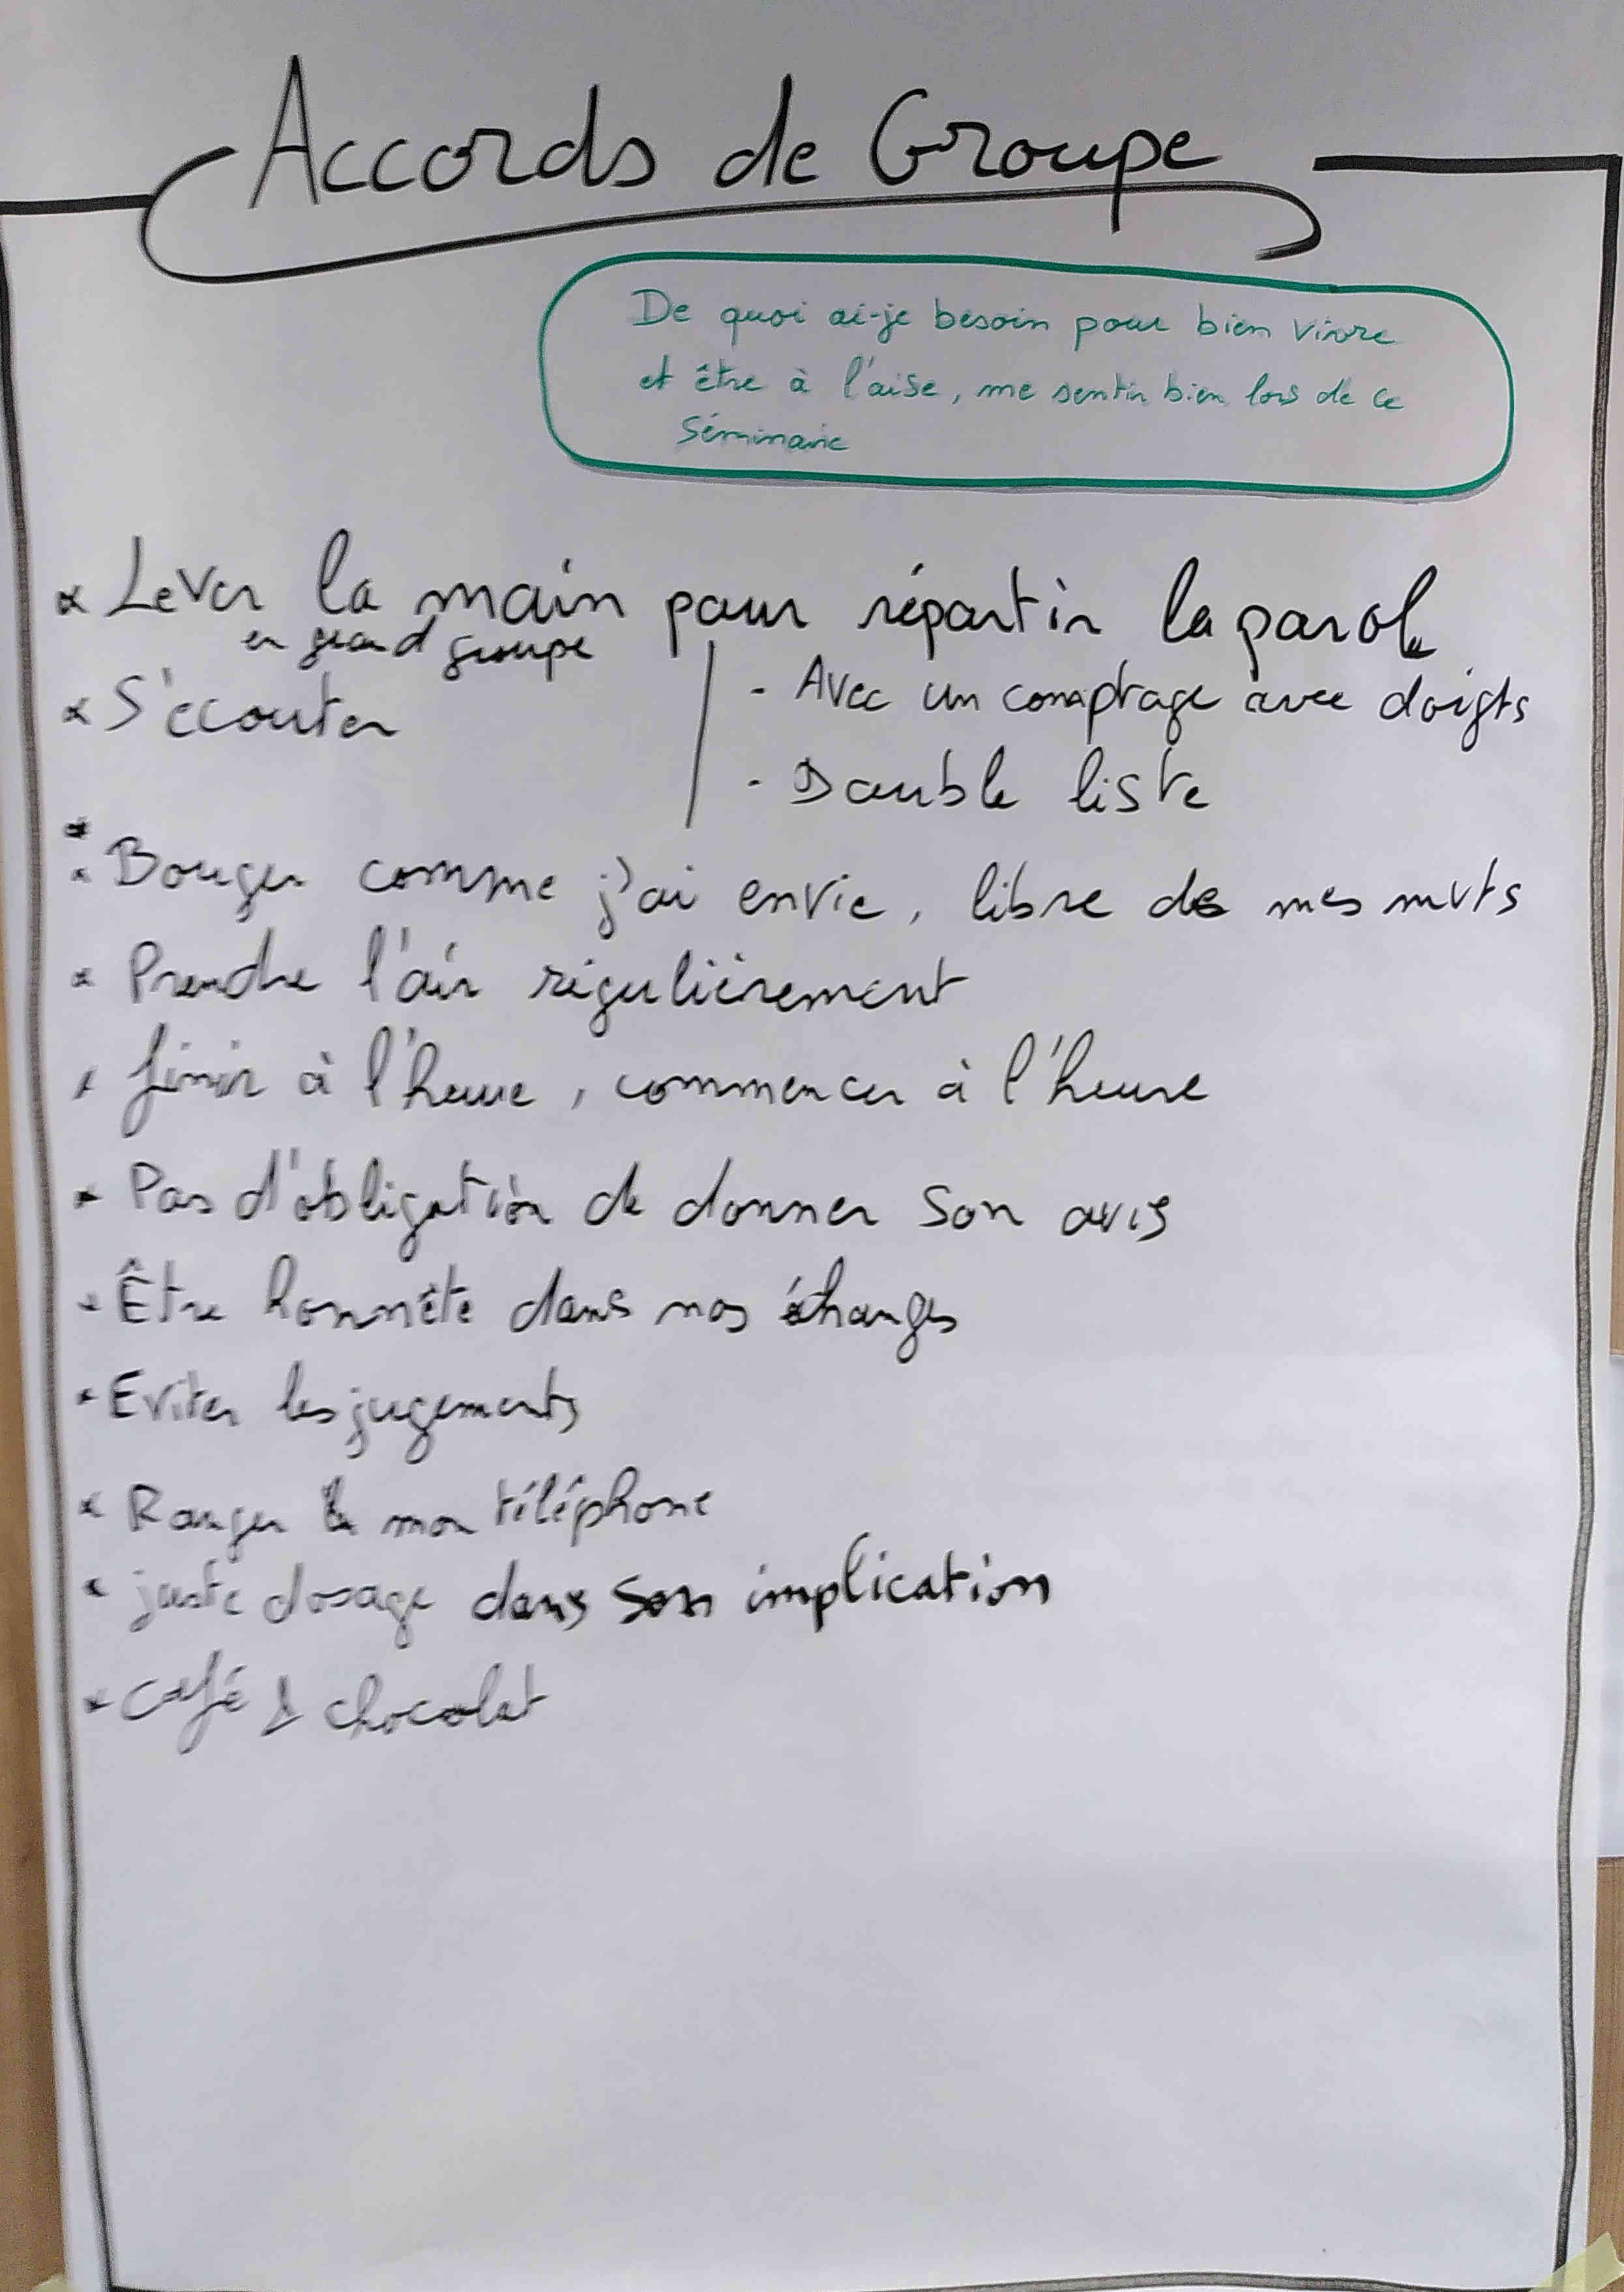 Accords de Groupe
De quoi ai-je besoin pour bien vivre
et être à l'aise, me sentir bien lors de ce
Séminaire
* Lever la main pour répartir la parole
en grand groupe
- Avec un comptage avec doigts
- Double liste
* S'écouter
* Bouger comme j'ai envie, libre de mes mvts
* Prendre l'air régulièrement
* finir à l'heure, commencer à l'heure
* Pas d'obligation de donner son avis
* Être honnête dans nos échanges
* Eviter les jugements
* Ranger mon téléphone
* juste dosage dans son implication
* Café & chocolat